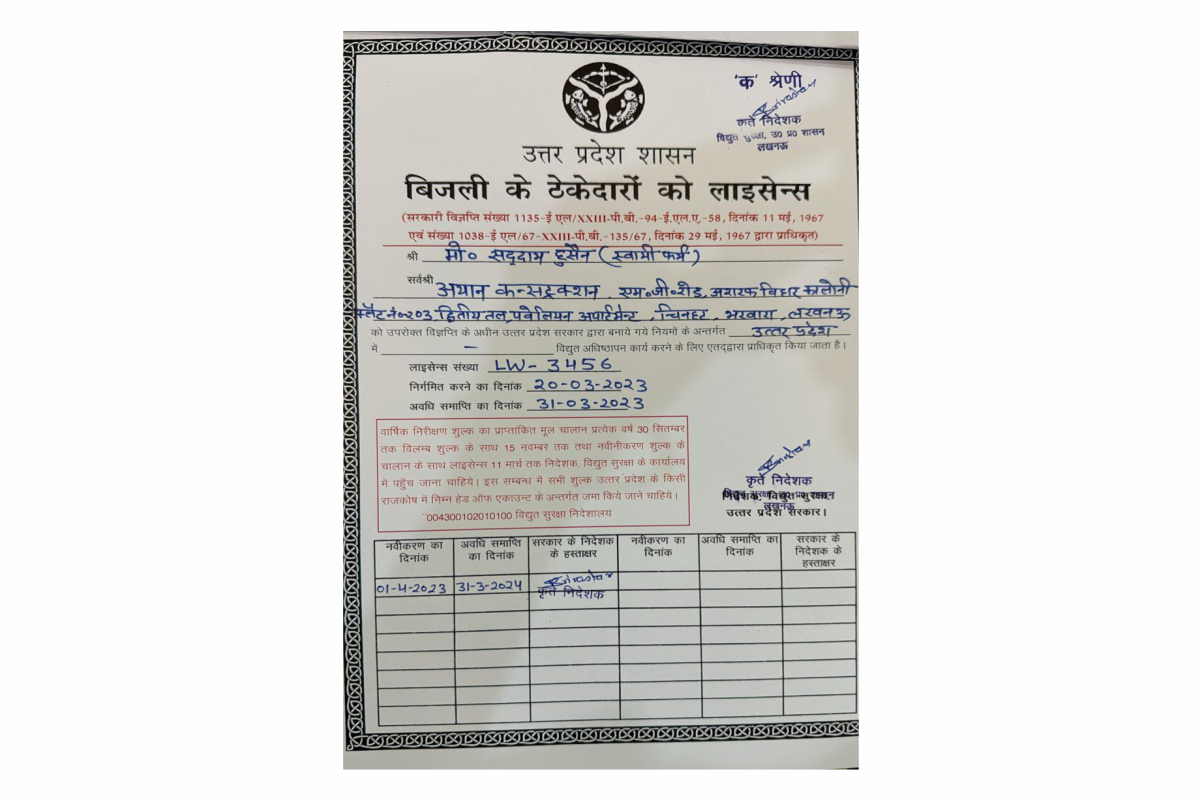 'क' श्रेणी
कृते निदेशक
विद्युत सुरक्षा, उ0 प्र0 शासन
लखनऊ
उत्तर प्रदेश शासन
बिजली के ठेकेदारों को लाइसेन्स
(सरकारी विज्ञप्ति संख्या 1135-ई एल/XXIII-पी.बी.-94-ई.एल.ए.-58, दिनांक 11 मई, 1967
एवं संख्या 1038-ई एल/67-XXIII-पी.बी.-135/67, दिनांक 29 मई, 1967 द्वारा प्राधिकृत)
श्री मो० सद्दाम हुसैन (स्वामी फर्म)
सर्वश्री अयान कन्सट्रक्शन, एम.जी.रोड, अशरफ विहार कालोनी
फ्लैट नं०२०३, द्वितीय तल, पवेलियन अपार्टमेन्ट, चिनहट, भरवारा, लखनऊ
को उपरोक्त विज्ञप्ति के अधीन उत्तर प्रदेश सरकार द्वारा बनाये गये नियमों के अन्तर्गत उत्तर प्रदेश
में – विद्युत अधिष्ठापन कार्य करने के लिए एतद्द्वारा प्राधिकृत किया जाता है।
लाइसेन्स संख्या LW-3456
निर्गमित करने का दिनांक 20-03-2023
अवधि समाप्ति का दिनांक 31-03-2023
वार्षिक निरीक्षण शुल्क का प्राप्तांकित मूल चालान प्रत्येक वर्ष 30 सितम्बर
तक विलम्ब शुल्क के साथ 15 नवम्बर तक तथा नवीनीकरण शुल्क के
चालान के साथ लाइसेन्स 11 मार्च तक निदेशक, विद्युत सुरक्षा के कार्यालय
में पहुँच जाना चाहिये। इस सम्बन्ध में सभी शुल्क उत्तर प्रदेश के किसी
राजकोष में निम्न हेड ऑफ एकाउन्ट के अन्तर्गत जमा किये जाने चाहिये।
"004300102010100 विद्युत सुरक्षा निदेशालय
कृते निदेशक
निदेशक, विद्युत सुरक्षा,
उत्तर प्रदेश सरकार।
लखनऊ
नवीकरण का दिनांक अवधि समाप्ति का दिनांक सरकार के निदेशक के हस्ताक्षर नवीकरण का दिनांक अवधि समाप्ति का दिनांक सरकार के निदेशक के हस्ताक्षर
01-4-2023 31-3-2024 कृते निदेशक